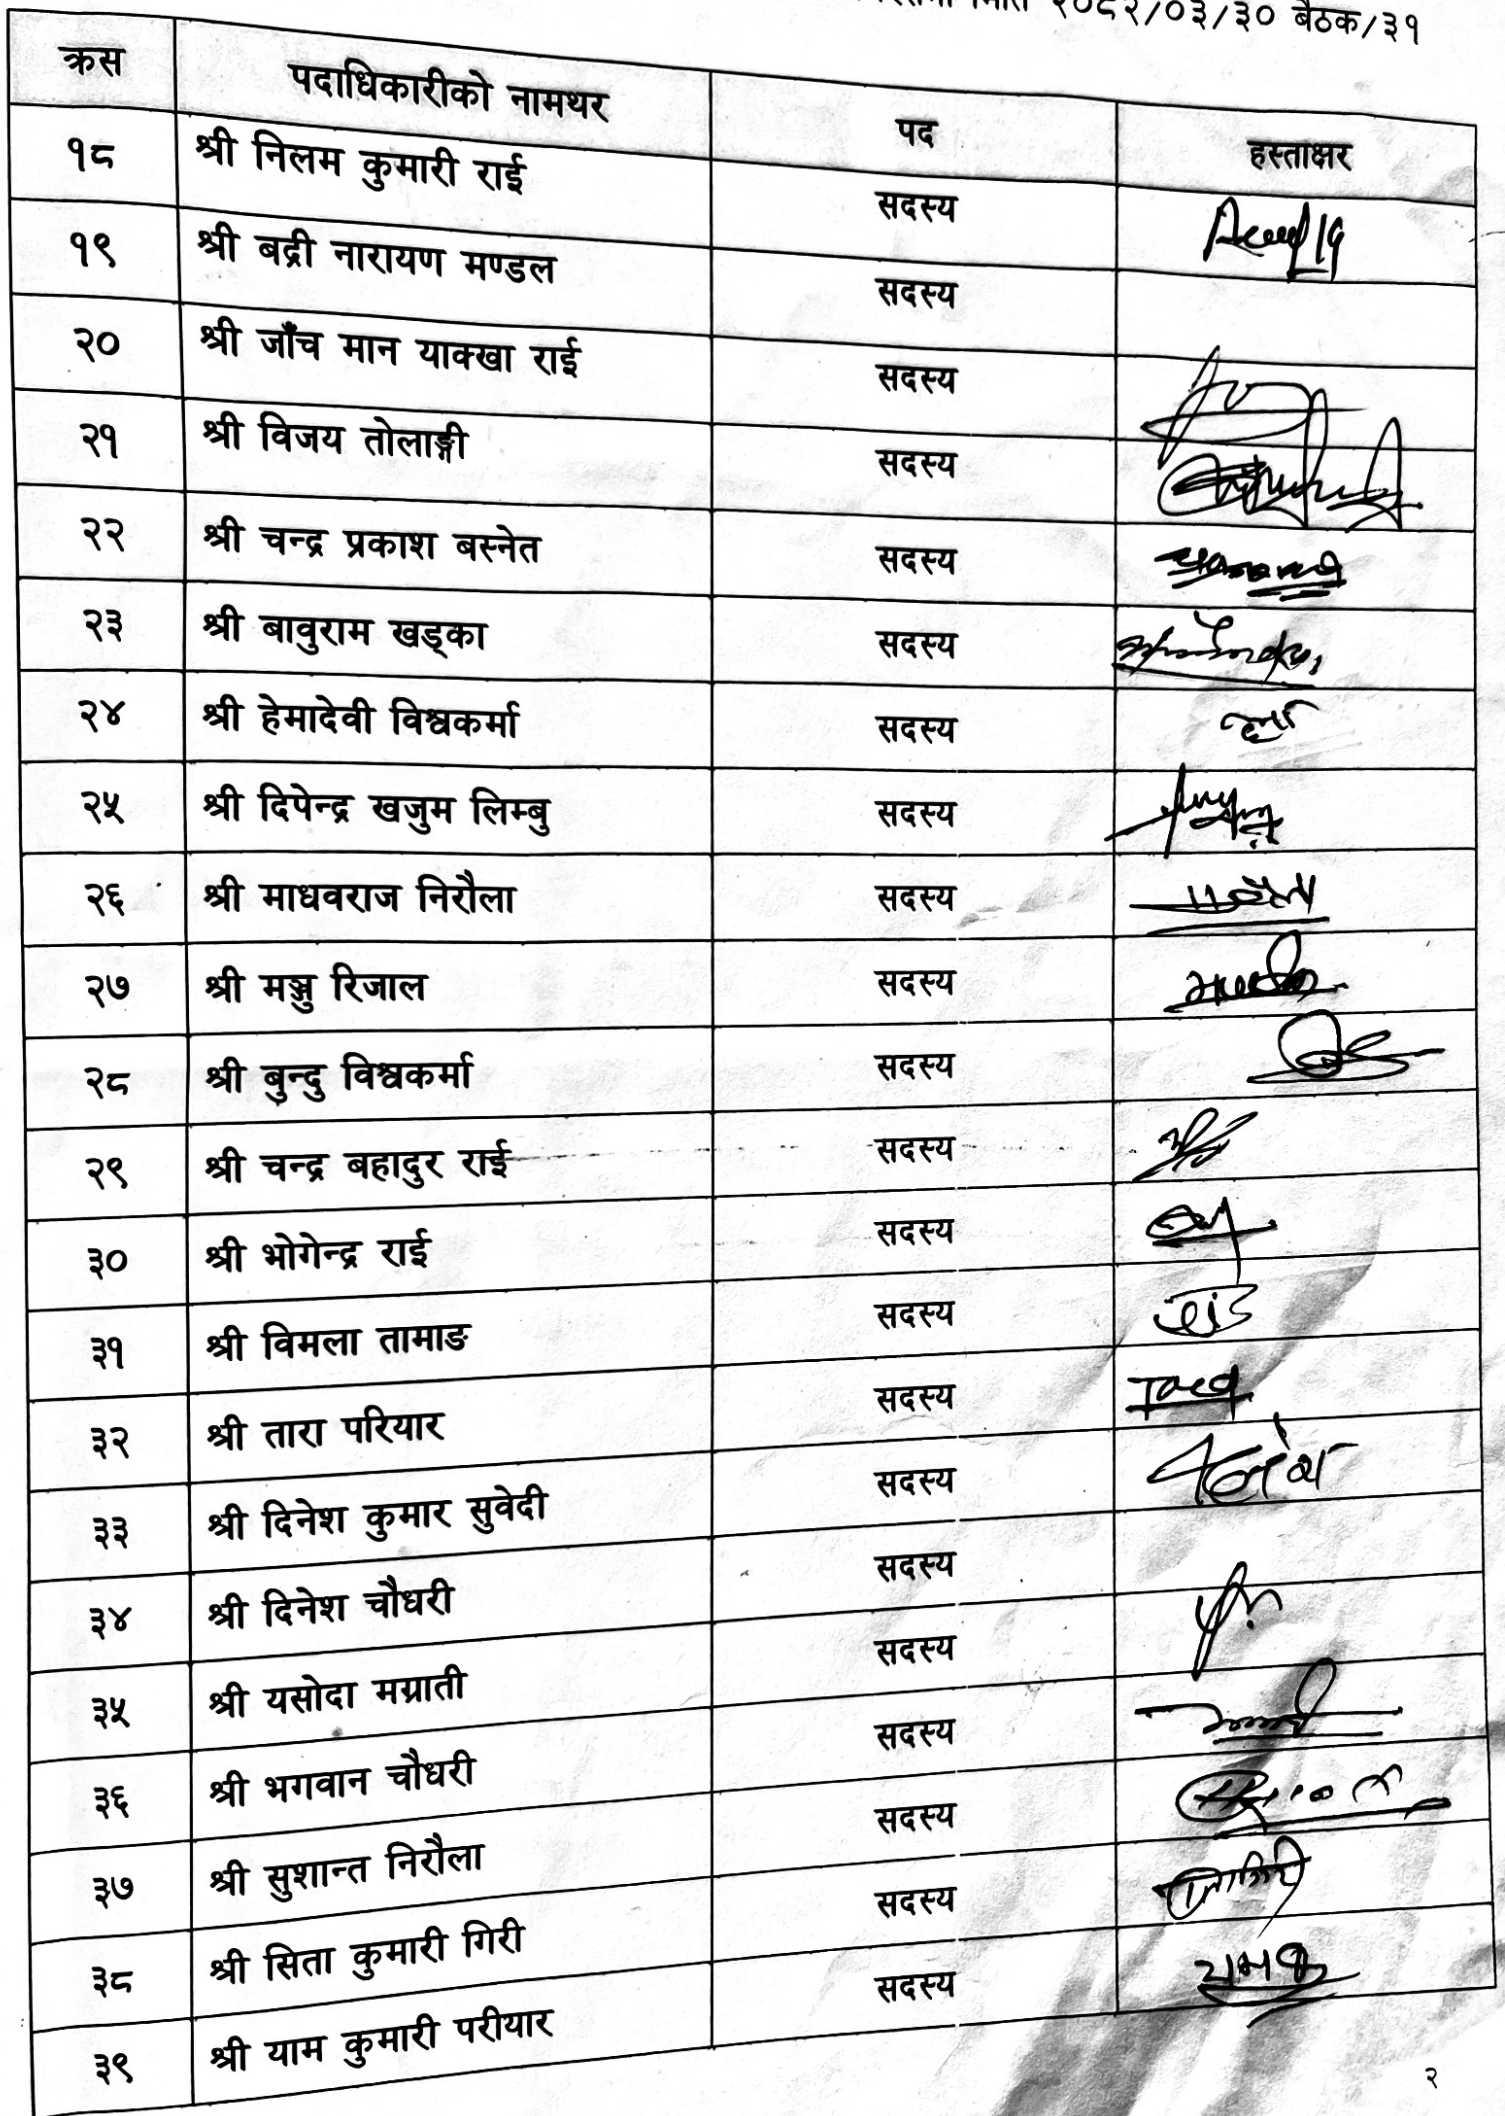 २०८२/०३/३० बैठक/३१
क्रस पदाधिकारीको नामथर पद हस्ताक्षर
१८ श्री निलम कुमारी राई सदस्य
१९ श्री बद्री नारायण मण्डल सदस्य
२० श्री जाँच मान याक्खा राई सदस्य
२१ श्री विजय तोलाङ्गी सदस्य
२२ श्री चन्द्र प्रकाश बस्नेत सदस्य
२३ श्री बावुराम खड्का सदस्य
२४ श्री हेमादेवी विश्वकर्मा सदस्य
२५ श्री दिपेन्द्र खजुम लिम्बु सदस्य
२६ श्री माधवराज निरौला सदस्य
२७ श्री मञ्जु रिजाल सदस्य
२८ श्री बुन्दु विश्वकर्मा सदस्य
२९ श्री चन्द्र बहादुर राई सदस्य
३० श्री भोगेन्द्र राई सदस्य
३१ श्री विमला तामाङ सदस्य
३२ श्री तारा परियार सदस्य
३३ श्री दिनेश कुमार सुवेदी सदस्य
३४ श्री दिनेश चौधरी सदस्य
३५ श्री यसोदा मग्राती सदस्य
३६ श्री भगवान चौधरी सदस्य
३७ श्री सुशान्त निरौला सदस्य
३८ श्री सिता कुमारी गिरी सदस्य
३९ श्री याम कुमारी परीयार सदस्य
२